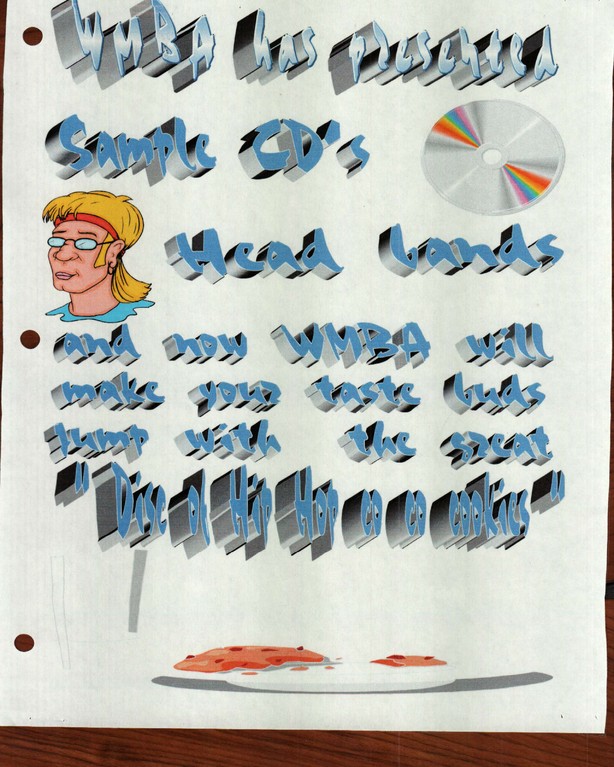 WMBA has presented
Sample CD's
Head bands
and now WMBA will
make your taste buds
jump with the great
"Disc of Hip Hop co co cookies"